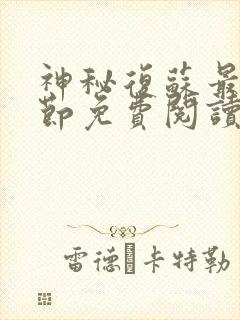 神秘復蘇最
節免費閱讀
雷德·卡特勒